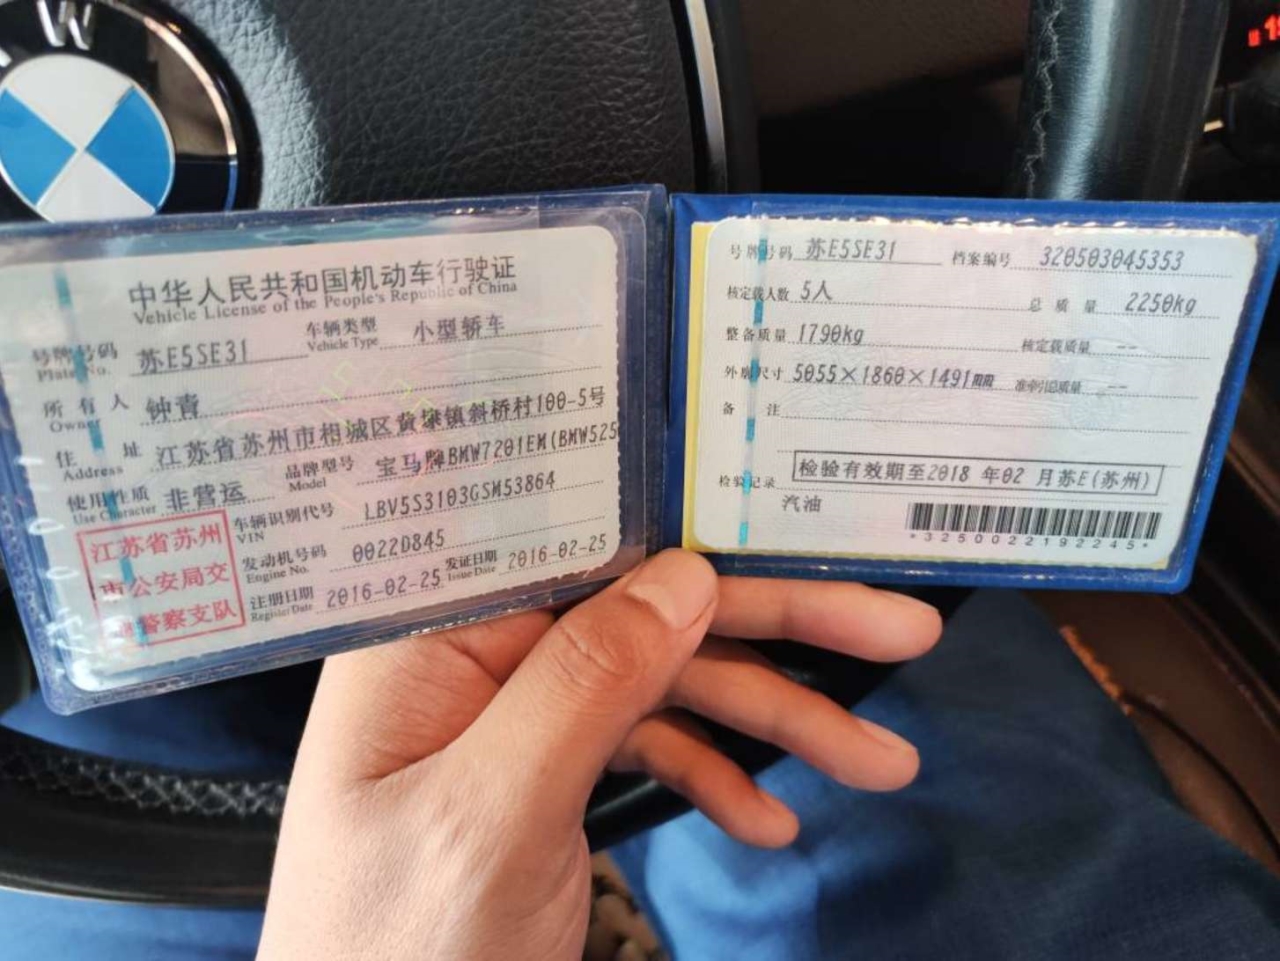 W
中华人民共和国机动车行驶证
Vehicle License of the People's Republic of China
号牌号码 苏E5SE31 车辆类型 小型轿车
Plate No. Vehicle Type
所有人 钟青
Owner
住址 江苏省苏州市相城区黄埭镇斜桥村100-5号
Address
使用性质 非营运 品牌型号 宝马牌BMW7201EM(BMW525
Use Character Model
江苏省苏州
市公安局交
警察支队
车辆识别代号 LBV5S3103GSM53864
VIN
发动机号码 0022D845
Engine No.
注册日期 2016-02-25 发证日期 2016-02-25
Register Date Issue Date
号牌号码 苏E5SE31 档案编号 320503045353
核定载人数 5人 总质量 2250kg
整备质量 1790kg 核定载质量 --
外廓尺寸 5055×1860×1491mm 准牵引总质量 --
备注
检验记录 检验有效期至2018年02月苏E(苏州)
汽油
*3250022192245*